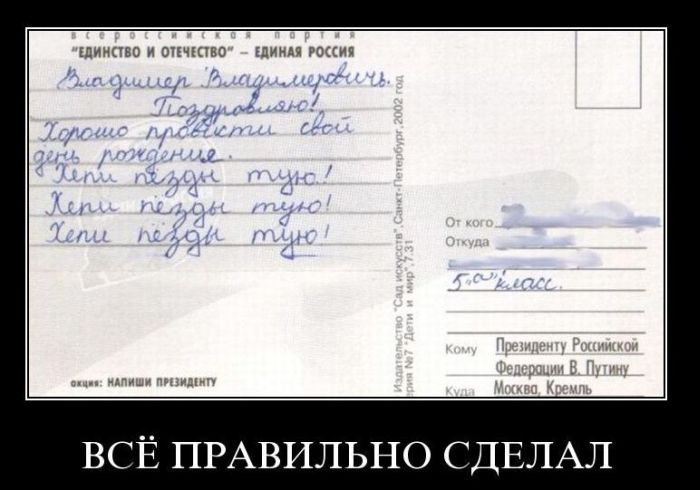 всероссийская партия
"ЕДИНСТВО И ОТЕЧЕСТВО" – ЕДИНАЯ РОССИЯ
Владимер Владимеровичь.
Поздравляю!
Хорошо провести свой
день рождение.
Хепи пёзды тую!
Хепи пёзды тую!
Хепи пёзды тую!
акция: НАПИШИ ПРЕЗИДЕНТУ
Издательство "Сад искусств", Санкт-Петербург, 2002 год
ерия №7 "Дети и мир", 7.31
От кого
Откуда
5 "а" класс.
Кому Президенту Российской
Федерации В. Путину
Куда Москва, Кремль
ВСЁ ПРАВИЛЬНО СДЕЛАЛ